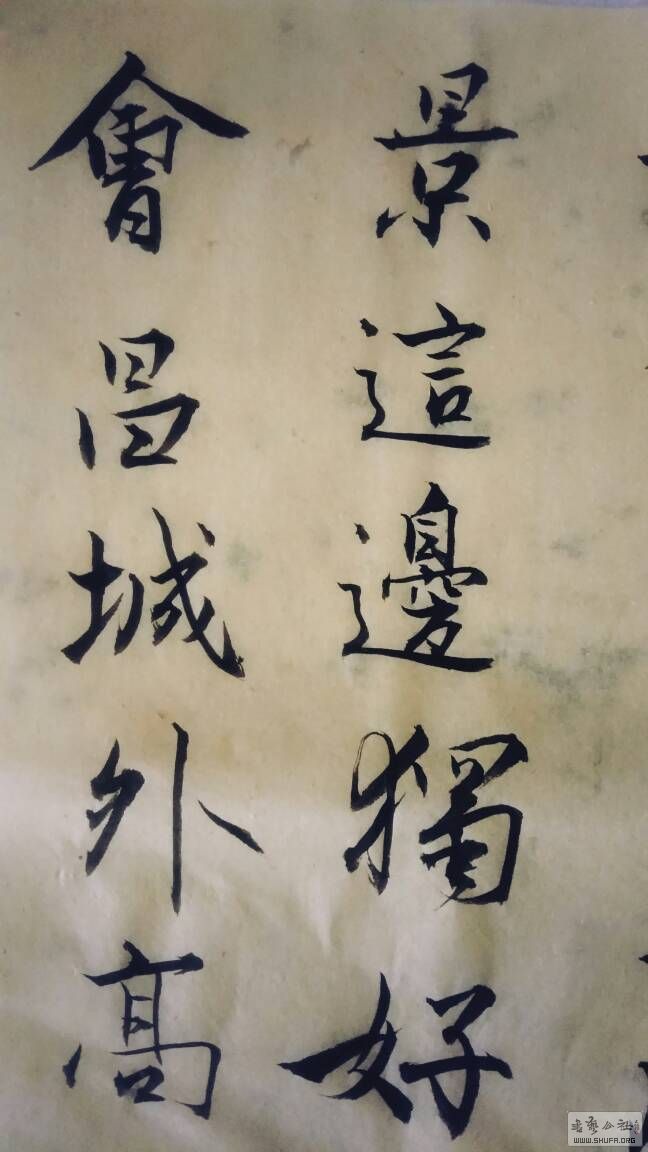 景這邊獨好
會昌城外高
書藝公社
WWW.SHUFA.ORG